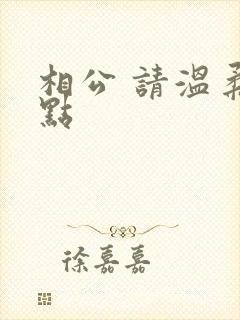 相公 請溫柔
點
徐嘉嘉